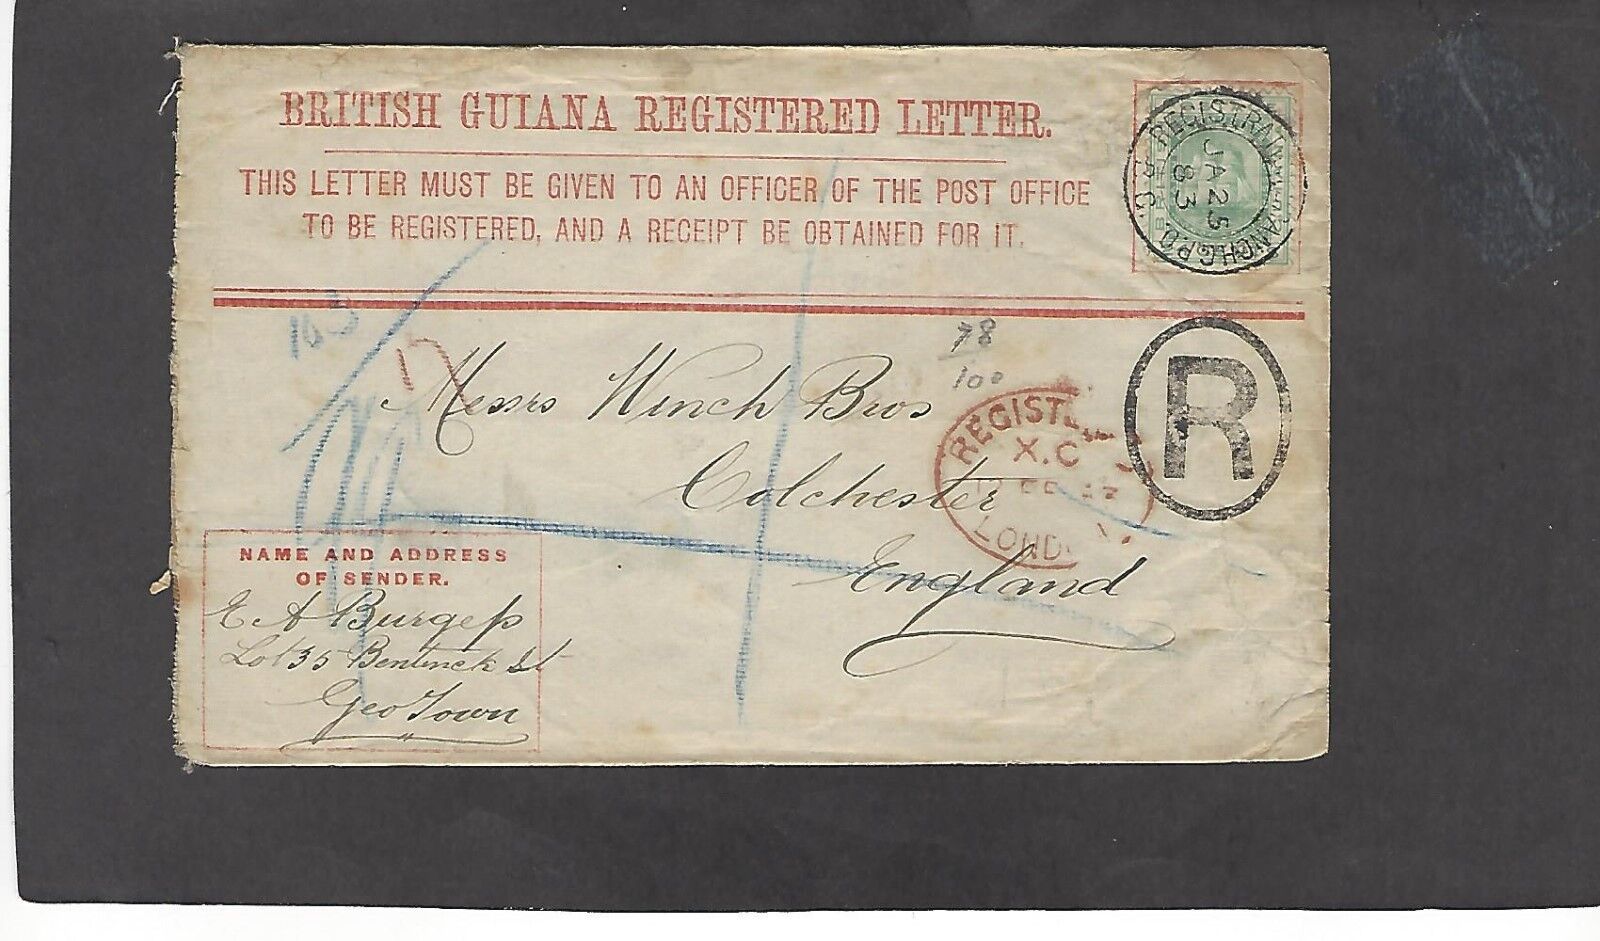 BRITISH GUIANA REGISTERED LETTER.
THIS LETTER MUST BE GIVEN TO AN OFFICER OF THE POST OFFICE
TO BE REGISTERED, AND A RECEIPT BE OBTAINED FOR IT.
REGISTRATION BRANCH G.P.O.
JA 25
83
103
78
100
R
Messrs Winch Bros
Colchester
England
REGISTE
X.C
LOND
NAME AND ADDRESS
OF SENDER.
E A Burgess
Lot 35 Bentinck St
GeoTown